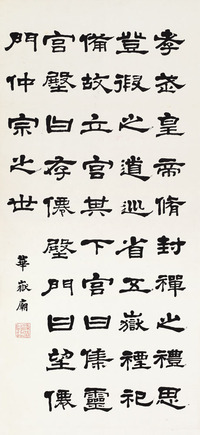 孝武皇帝脩封禪之禮思
登徦之道巡省五嶽禋祀
備故立宮其下宮曰集靈
宮殿曰存僊殿門曰望僊
門仲宗之世
華嶽廟